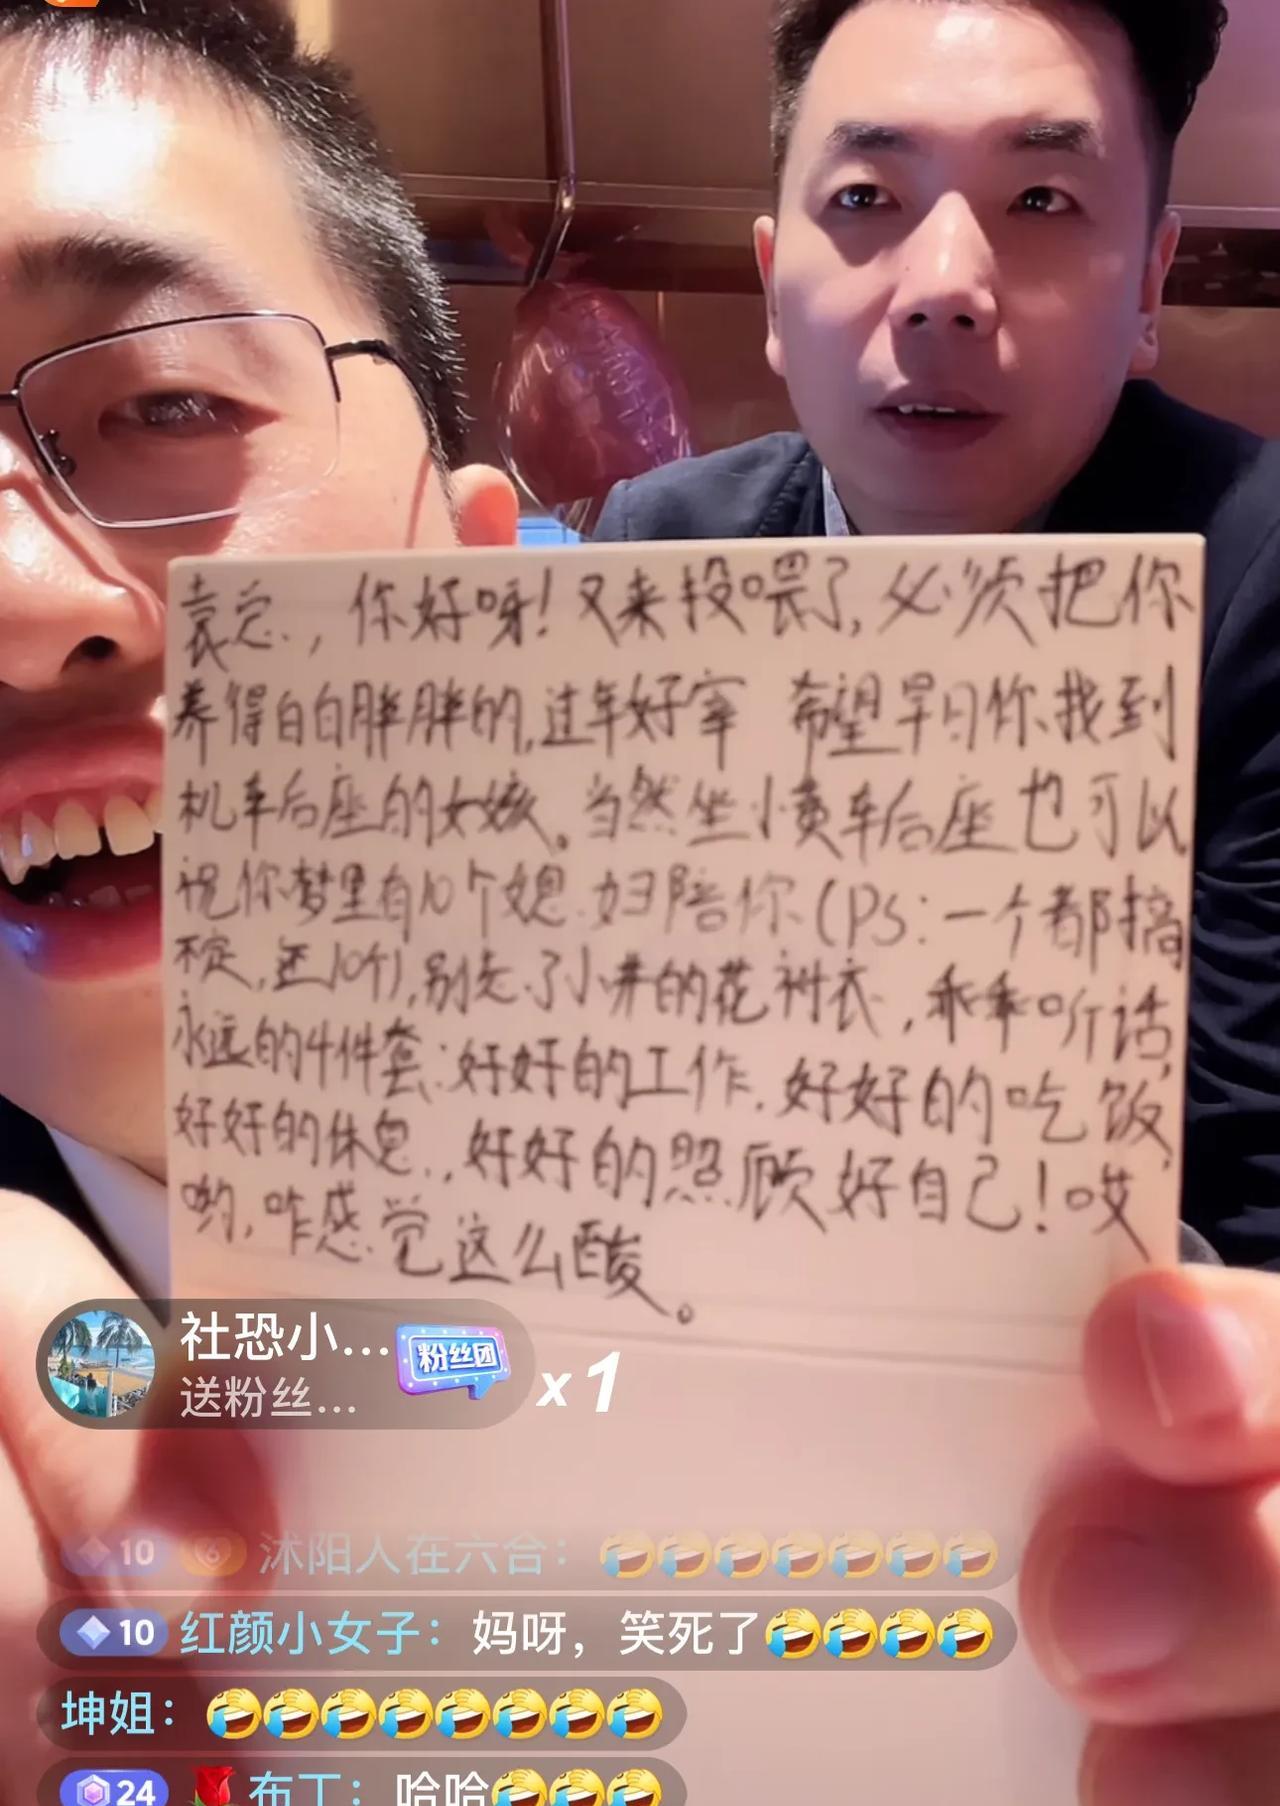 袁总，你好呀！又来投喂了，必须把你
养得白白胖胖的，过年好宰 希望早日你找到
机车后座的女孩。当然坐小黄车后座也可以
祝你梦里有10个媳妇陪你（PS：一个都搞
不定，还10个），别忘了小米的花衬衣，乖乖听话，
永远的4件套：好好的工作，好好的吃饭，
好好的休息，好好的照顾好自己！哎
哟，咋感觉这么酸。
社恐小...
粉丝团
x1
送粉丝...
10 6 沭阳人在六合：🤣🤣🤣🤣🤣🤣🤣
10 红颜小女子：妈呀，笑死了🤣🤣🤣🤣
坤姐：🤣🤣🤣🤣🤣🤣🤣🤣
24 🌹 布丁：哈哈🤣🤣🤣